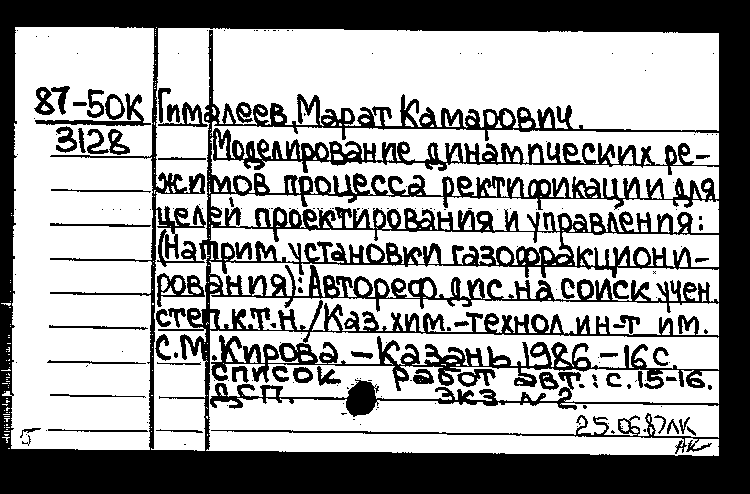 87-50К Гималеев, Марат Камарович.
3128 Моделирование динамических ре-
жимов процесса ректификации для
целей проектирования и управления:
(На прим. установки газофракциони-
рования): Автореф. дис. на соиск учен.
степ. к.т.н. / Каз. хим.-технол. ин-т им.
С.М. Кирова. - Казань, 1986. - 16 с.
Список работ авт.: с. 15-16.
ДСП. Экз. № 2.
25.06.87 ЛК
АК